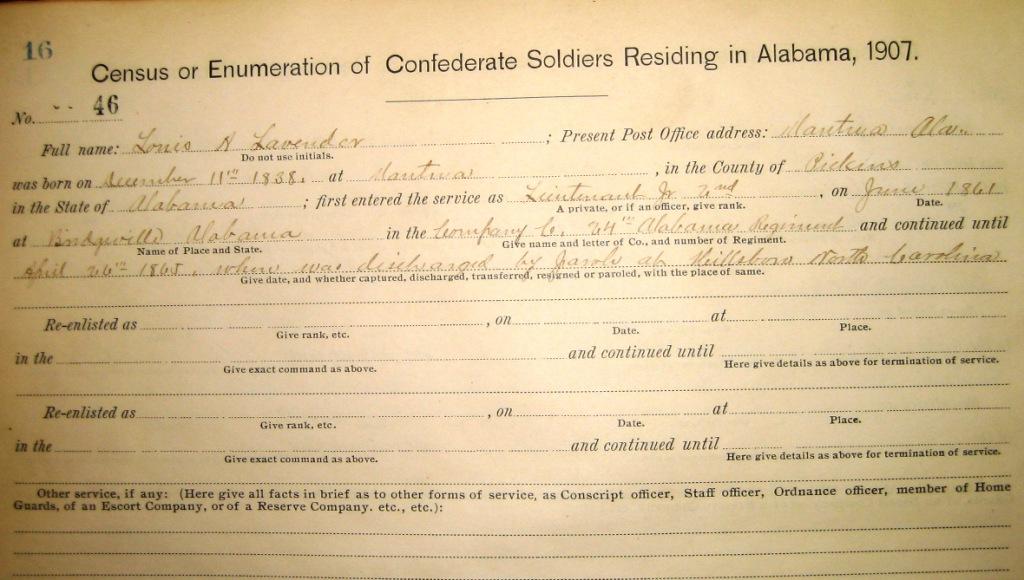 16
Census or Enumeration of Confederate Soldiers Residing in Alabama, 1907.
No. 46
Full name: Louis H Lavender ; Present Post Office address: Mantua Ala.
Do not use initials.
was born on December 11th 1838. at Mantua , in the County of Pickins
in the State of Alabama ; first entered the service as Lieutenant Jr 2nd , on June 1861
A private, or if an officer, give rank. Date.
at Bridgeville Alabama in the Company C. 24th Alabama Regiment and continued until
Name of Place and State. Give name and letter of Co., and number of Regiment.
April 26th 1865. when was discharged by Parole at Hillsboro North Carolina
Give date, and whether captured, discharged, transferred, resigned or paroled, with the place of same.
Re-enlisted as , on at
Give rank, etc. Date. Place.
in the and continued until
Give exact command as above. Here give details as above for termination of service.
Re-enlisted as , on at
Give rank, etc. Date. Place.
in the and continued until
Give exact command as above. Here give details as above for termination of service.
Other service, if any: (Here give all facts in brief as to other forms of service, as Conscript officer, Staff officer, Ordnance officer, member of Home
Guards, of an Escort Company, or of a Reserve Company. etc., etc.):